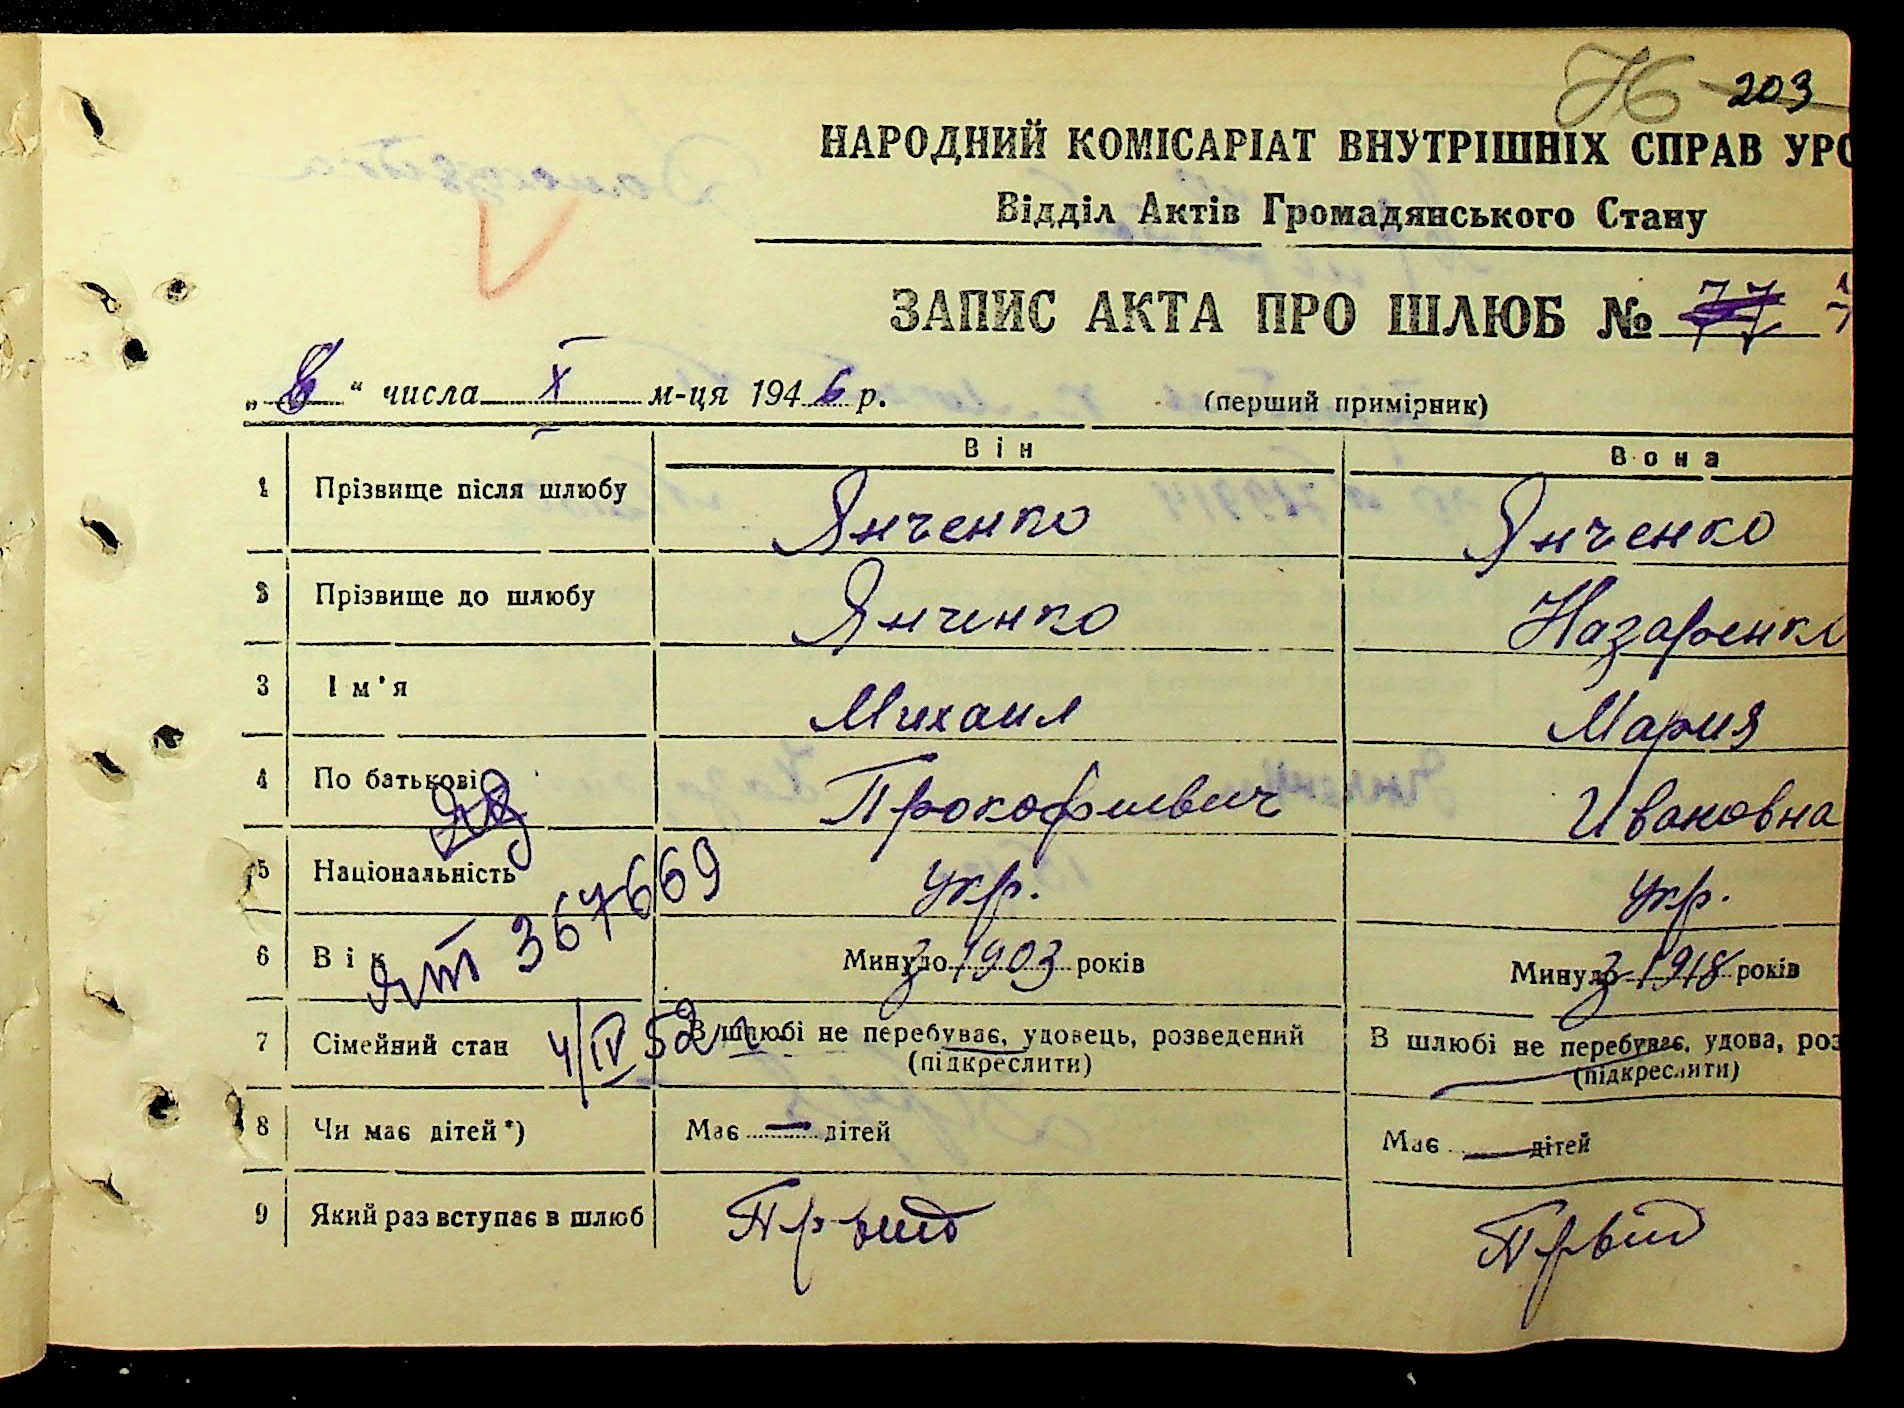 203
НАРОДНИЙ КОМІСАРІАТ ВНУТРІШНІХ СПРАВ УРС
Відділ Актів Громадянського Стану
ЗАПИС АКТА ПРО ШЛЮБ № 77
„ 8 “ числа X м-ця 1946 р. (перший примірник)
Він Вона
1 Прізвище після шлюбу Янченко Янченко
2 Прізвище до шлюбу Янченко Назаренко
3 Ім'я Михаил Мария
4 По батькові Прокофиевич Ивановна
5 Національність укр. укр.
6 Вік Минуло з 1903 років Минуло з 1918 років
ЯШ 367669
7 Сімейний стан В шлюбі не перебуває, удовець, розведений В шлюбі не перебуває, удова, роз
(підкреслити) (підкреслити)
4/IV 52 г.
8 Чи має дітей*) Має — дітей Має — дітей
9 Який раз вступає в шлюб